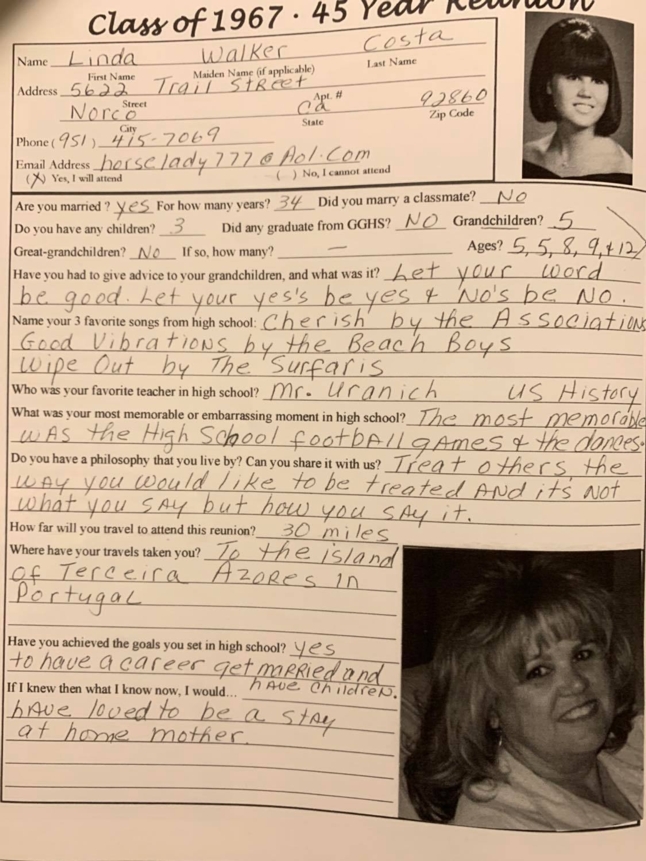 Class of 1967 · 45 Year Reunion
Name Linda Walker Costa
First Name Maiden Name (if applicable) Last Name
Address 5622 Trail Street
Street Apt. #
Norco Ca 92860
City State Zip Code
Phone (951) 415-7069
Email Address horselady777@Aol.Com
(X) Yes, I will attend ( ) No, I cannot attend
Are you married? yes For how many years? 34 Did you marry a classmate? No
Do you have any children? 3 Did any graduate from GGHS? NO Grandchildren? 5
Great-grandchildren? No If so, how many? — Ages? 5, 5, 8, 9, + 12
Have you had to give advice to your grandchildren, and what was it? Let your word
be good. Let your yes's be yes & No's be No.
Name your 3 favorite songs from high school: Cherish by the Associations
Good Vibrations by the Beach Boys
Wipe Out by The Surfaris
Who was your favorite teacher in high school? Mr. Uranich US History
What was your most memorable or embarrassing moment in high school? The most memorable
was the High School football games & the dances.
Do you have a philosophy that you live by? Can you share it with us? Treat others the
way you would like to be treated and it's not
what you say but how you say it.
How far will you travel to attend this reunion? 30 miles
Where have your travels taken you? To the island
of Terceira Azores in
Portugal
Have you achieved the goals you set in high school? yes
to have a career get married and
have children.
If I knew then what I know now, I would...
have loved to be a stay
at home mother.